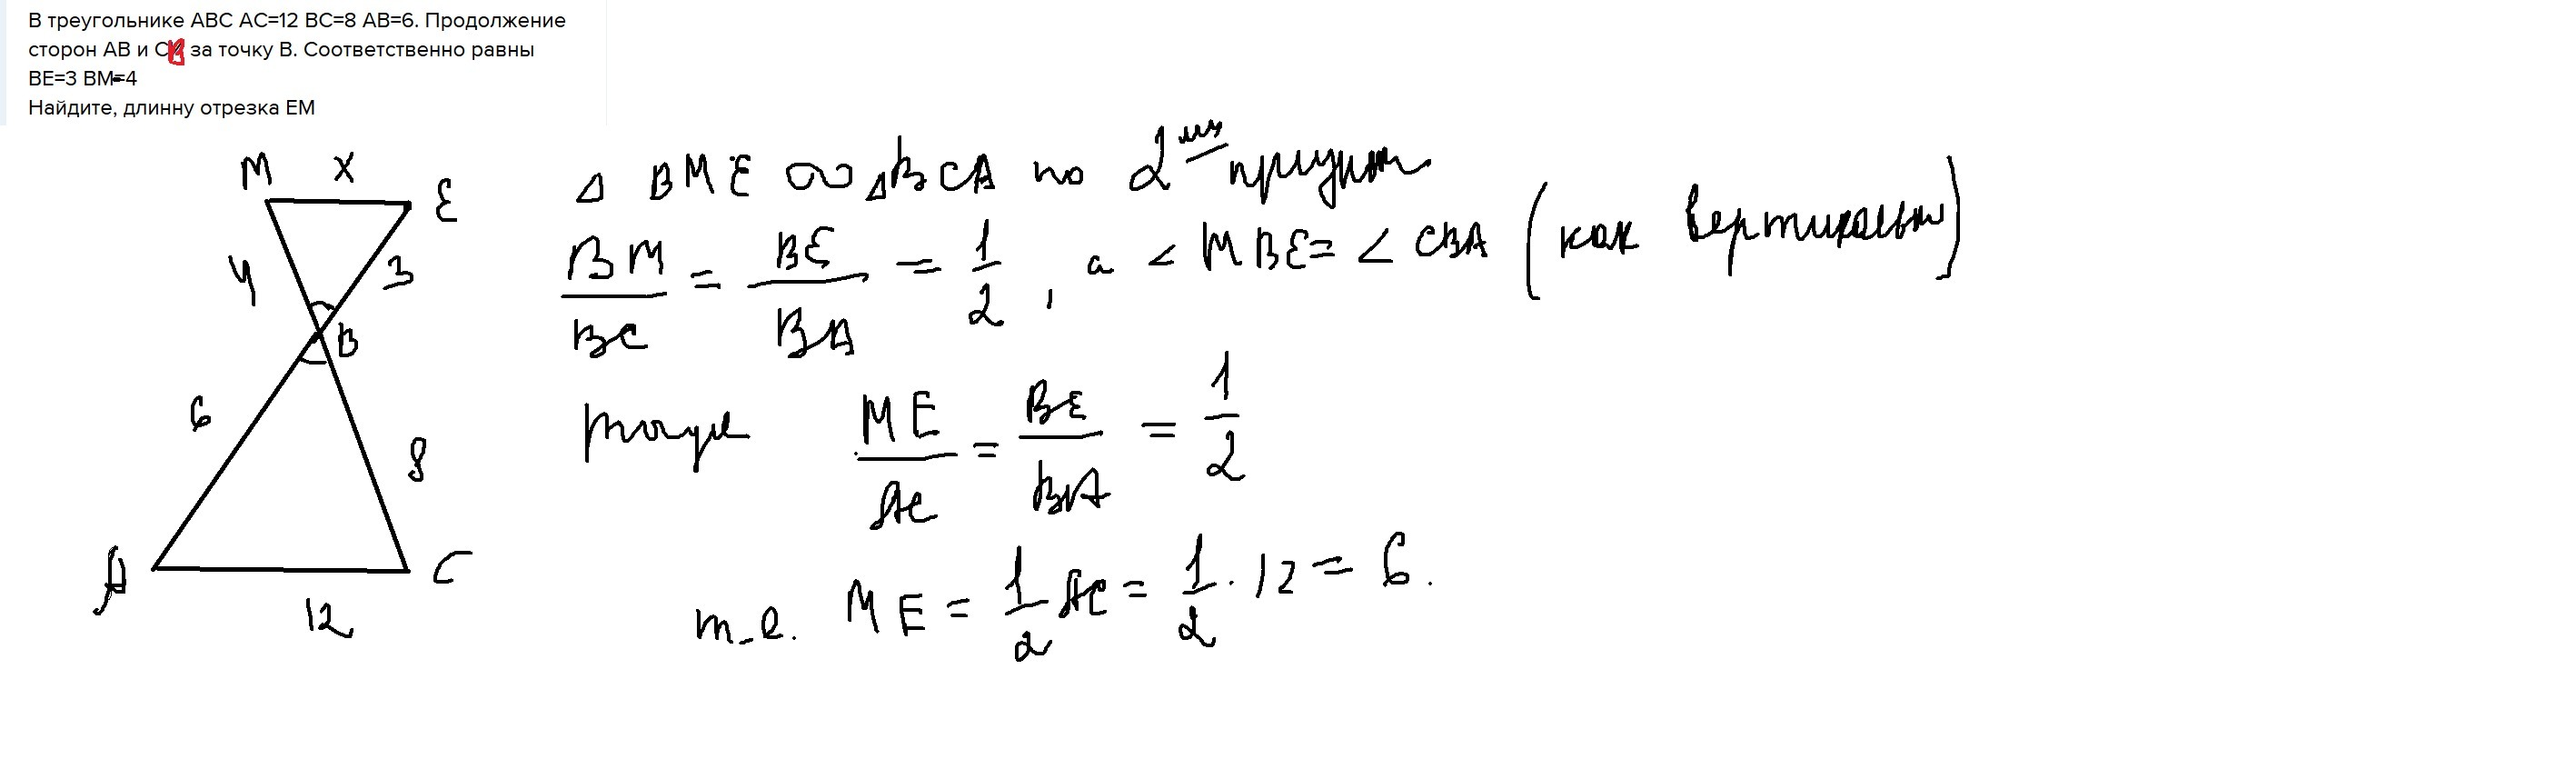 В треугольнике ABC AC=12 BC=8 AB=6. Продолжение
сторон AB и CB за точку B. Соответственно равны
BE=3 BM=4
Найдите, длинну отрезка EM
M x E
4 3
B
6
8
A C
12
Δ BME ∞ Δ BCA по 2
BM/BC = BE/BA = 1/2, а ∠ MBE = ∠ CBA (как вертикальные)
тогда ME/AC = BE/BA = 1/2
т.е. ME = 1/2 AC = 1/2 · 12 = 6.